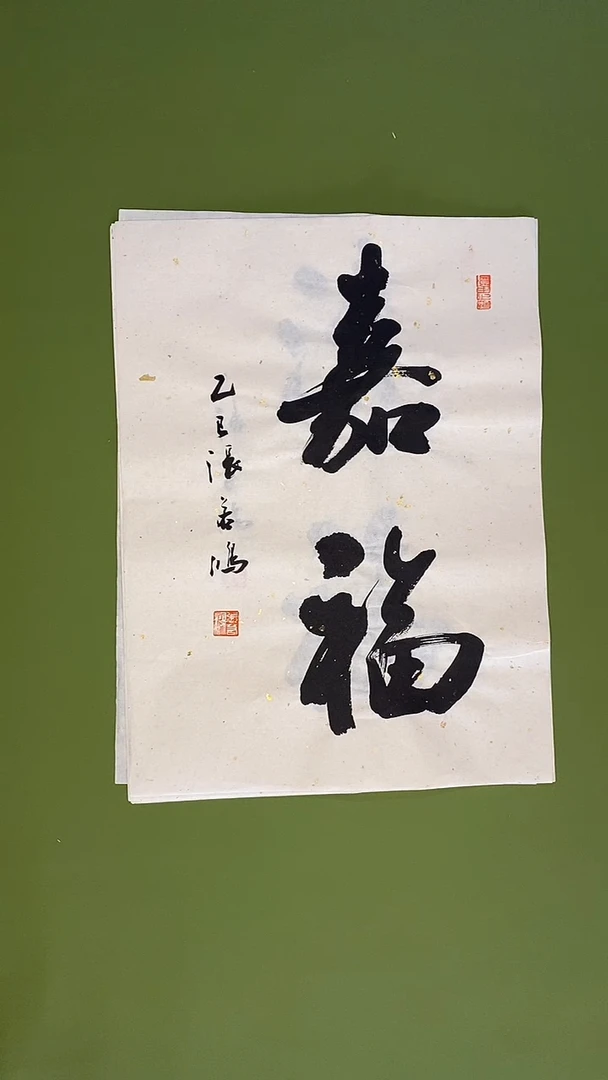 嘉福
乙巳張若鴻